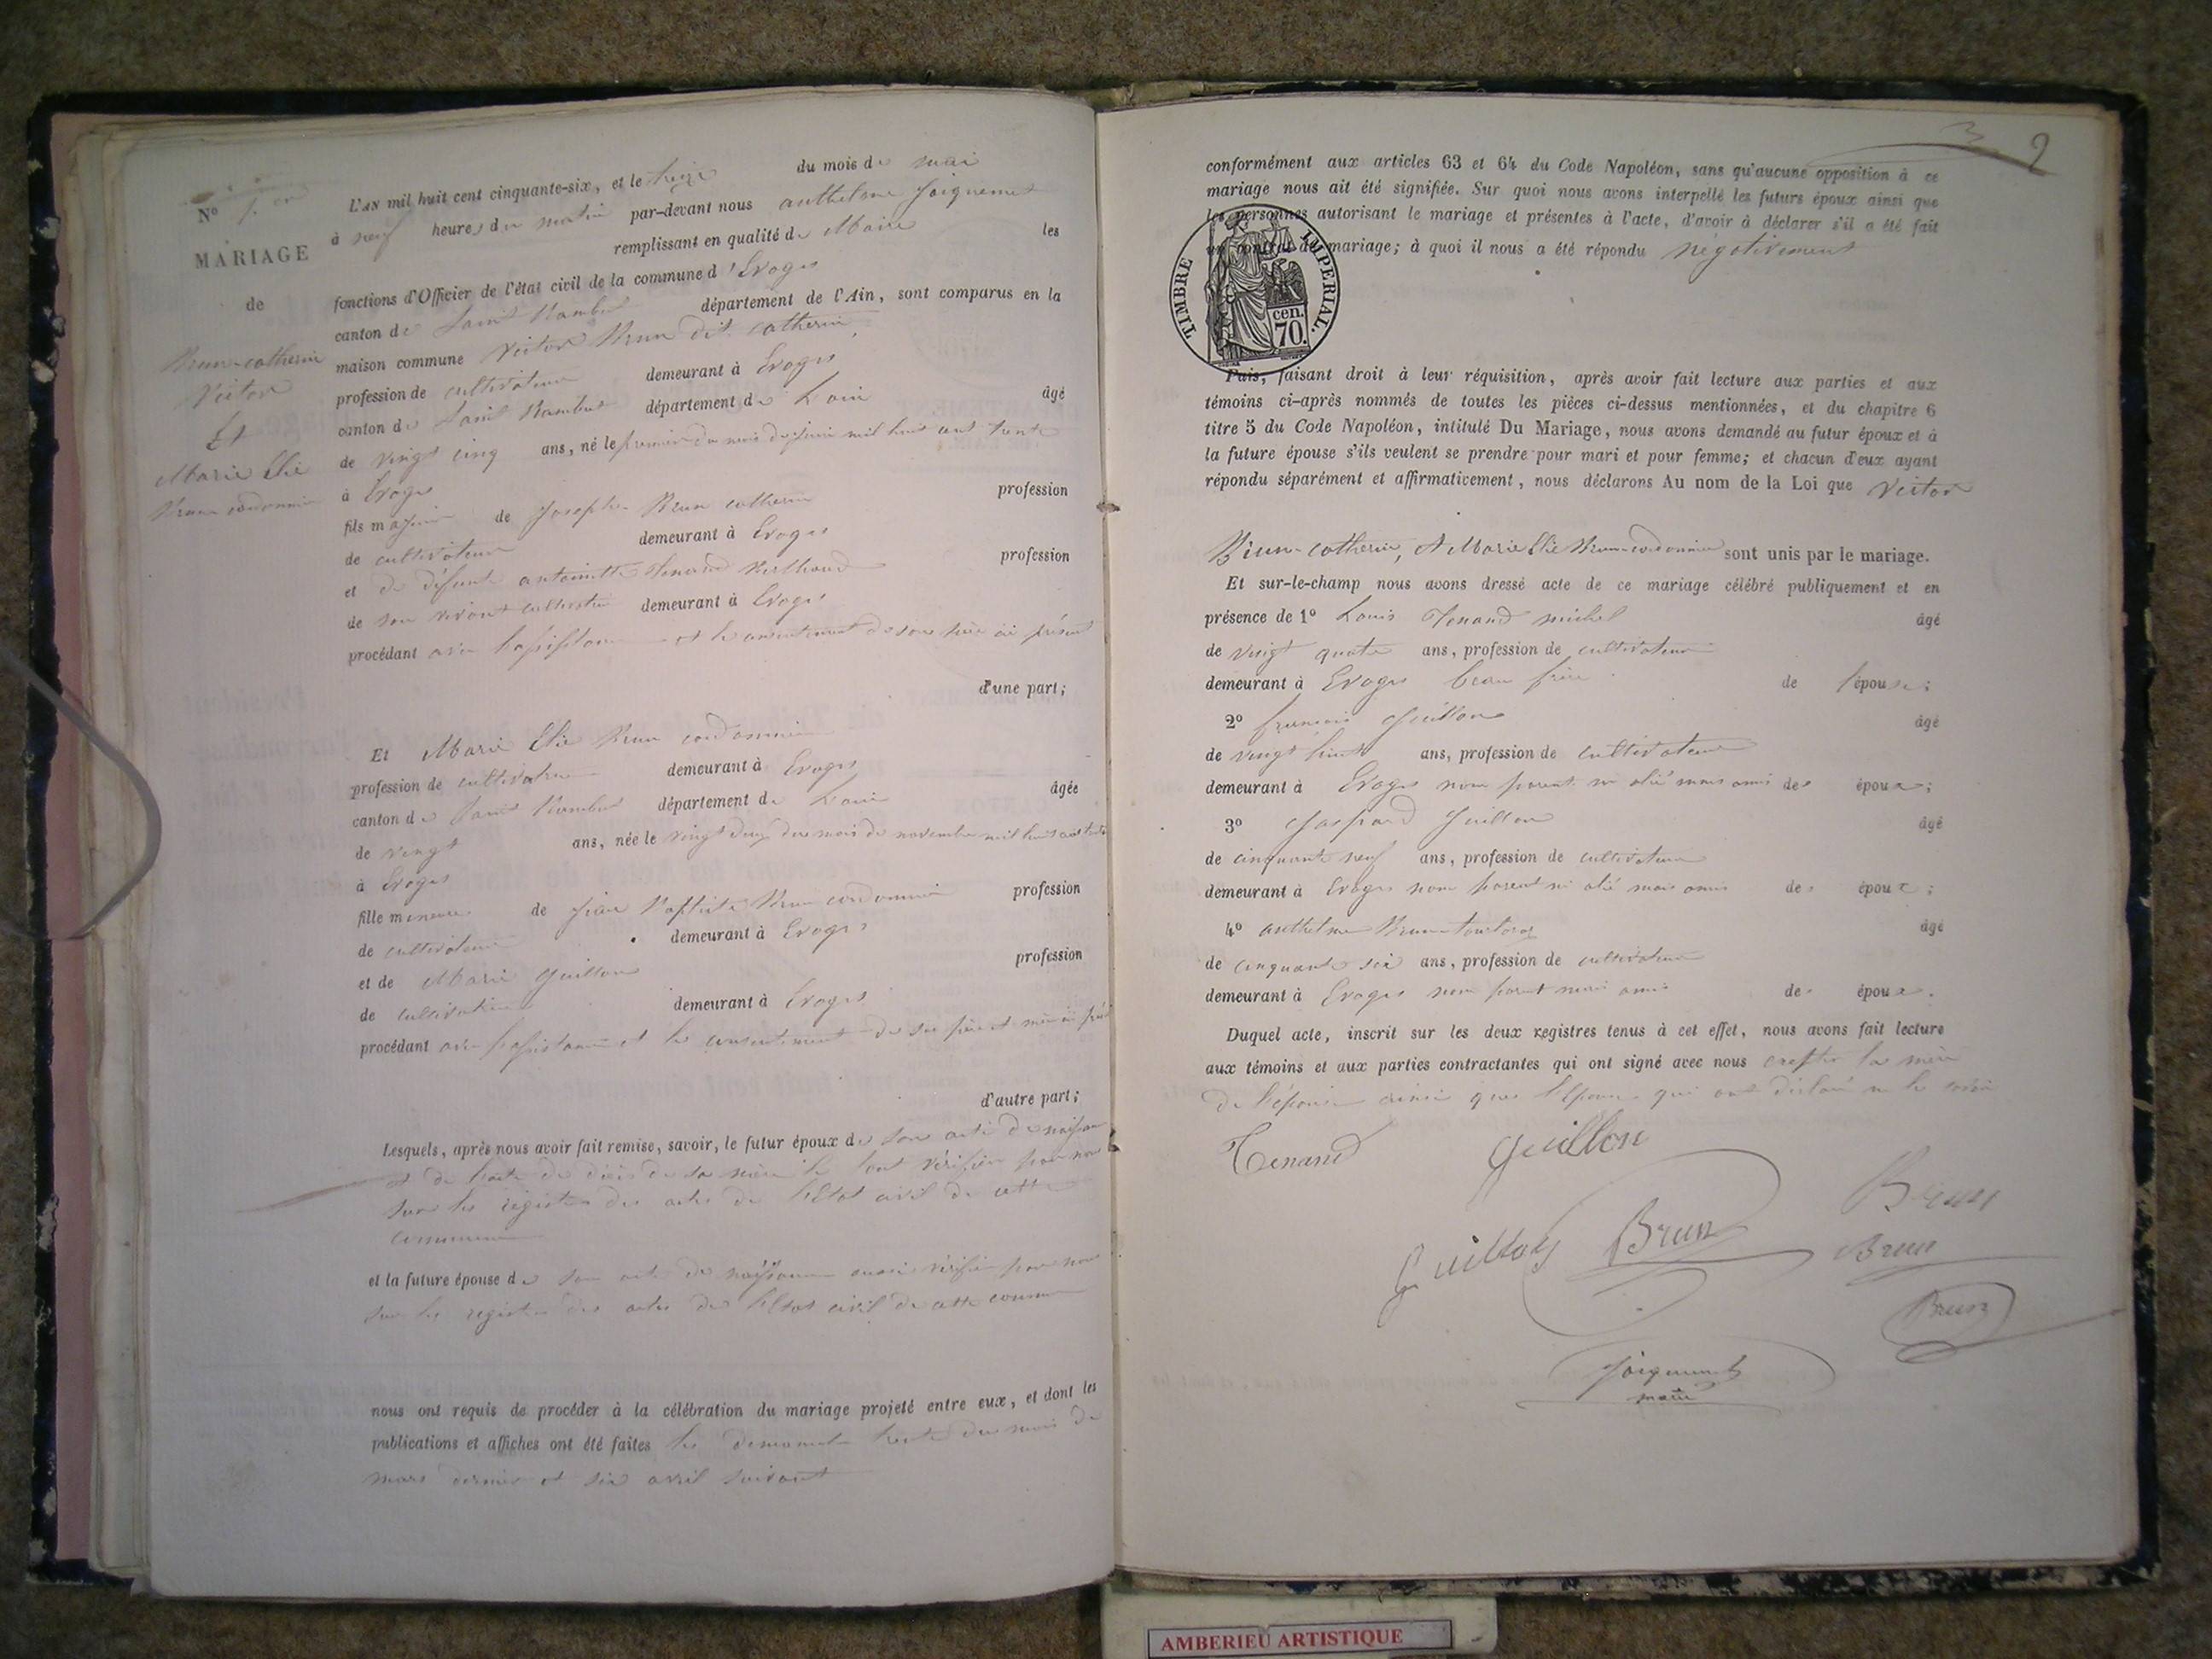 N° 1.er
MARIAGE
de
Brun-catherin
Victor
Et
Marie Elie
Brun cordonnier
L'AN mil huit cent cinquante-six, et le treize du mois de mai
à neuf heures du matin par-devant nous anthelme Joignement
remplissant en qualité de Maire les
fonctions d'Officier de l'état civil de la commune d'Evoges
canton de Saint Rambert département de l'Ain, sont comparus en la
maison commune Victor Brun dit catherin
profession de cultivateur demeurant à Evoges
canton de Saint Rambert département de L'ain âgé
de vingt cinq ans, né le premier du mois de juin mil huit cent trente
à Evoges
fils majeur de Joseph Brun catherin profession
de cultivateur demeurant à Evoges
et de défunte antoinette Tenand Berthond profession
de son vivant cultivatrice demeurant à Evoges
procédant avec l'assistance et le consentement de son père ici présent
d'une part;
Et Marie Elie Brun cordonnier
profession de cultivatrice demeurant à Evoges
canton de Saint Rambert département de L'ain âgée
de vingt ans, née le vingt deux du mois de novembre mil huit cent trente
à Evoges
fille mineure de Jean Baptiste Brun cordonnier profession
de cultivateur demeurant à Evoges
et de Marie Guillon profession
de cultivatrice demeurant à Evoges
procédant avec l'assistance et le consentement de ses père et mère ici présents
d'autre part;
Lesquels, après nous avoir fait remise, savoir, le futur époux de son acte de naissance
et de l'acte de décès de sa mère le tout vérifié par nous
sur les registres des actes de l'Etat civil de cette
commune
et la future épouse de son acte de naissance aussi vérifié par nous
sur les registres des actes de l'Etat civil de cette commune
nous ont requis de procéder à la célébration du mariage projeté entre eux, et dont les
publications et affiches ont été faites les dimanches trente du mois de
mars dernier et six avril suivant
3 2
conformément aux articles 63 et 64 du Code Napoléon, sans qu'aucune opposition à ce
mariage nous ait été signifiée. Sur quoi nous avons interpellé les futurs époux ainsi que
les personnes autorisant le mariage et présentes à l'acte, d'avoir à déclarer s'il a été fait
un contrat de mariage; à quoi il nous a été répondu négativement
TIMBRE IMPERIAL.
70. cen.
Puis, faisant droit à leur réquisition, après avoir fait lecture aux parties et aux
témoins ci-après nommés de toutes les pièces ci-dessus mentionnées, et du chapitre 6
titre 5 du Code Napoléon, intitulé Du Mariage, nous avons demandé au futur époux et à
la future épouse s'ils veulent se prendre pour mari et pour femme; et chacun d'eux ayant
répondu séparément et affirmativement, nous déclarons Au nom de la Loi que Victor
Brun-catherin, et Marie Elie Brun-cordonnier sont unis par le mariage.
Et sur-le-champ nous avons dressé acte de ce mariage célébré publiquement et en
présence de 1° Louis Tenand michel âgé
de vingt quatre ans, profession de cultivateur
demeurant à Evoges beau frère de l'épouse;
2° francois Guillon âgé
de vingt huit ans, profession de cultivateur
demeurant à Evoges non parent ni alié mais ami des époux;
3° Gaspard Guillon âgé
de cinquante neuf ans, profession de cultivateur
demeurant à Evoges non parent ni alié mais amis des époux;
4° anthelme Brun-tourtoras âgé
de cinquante six ans, profession de cultivateur
demeurant à Evoges non parent mais amis des époux.
Duquel acte, inscrit sur les deux registres tenus à cet effet, nous avons fait lecture
aux témoins et aux parties contractantes qui ont signé avec nous excepté la mère
de l'épouse ainsi que l'Epouse qui ont déclaré ne le savoir
Tenand Guillon
Guillon Brun Brun
Brun
Brun
Joignement
maire
AMBERIEU ARTISTIQUE